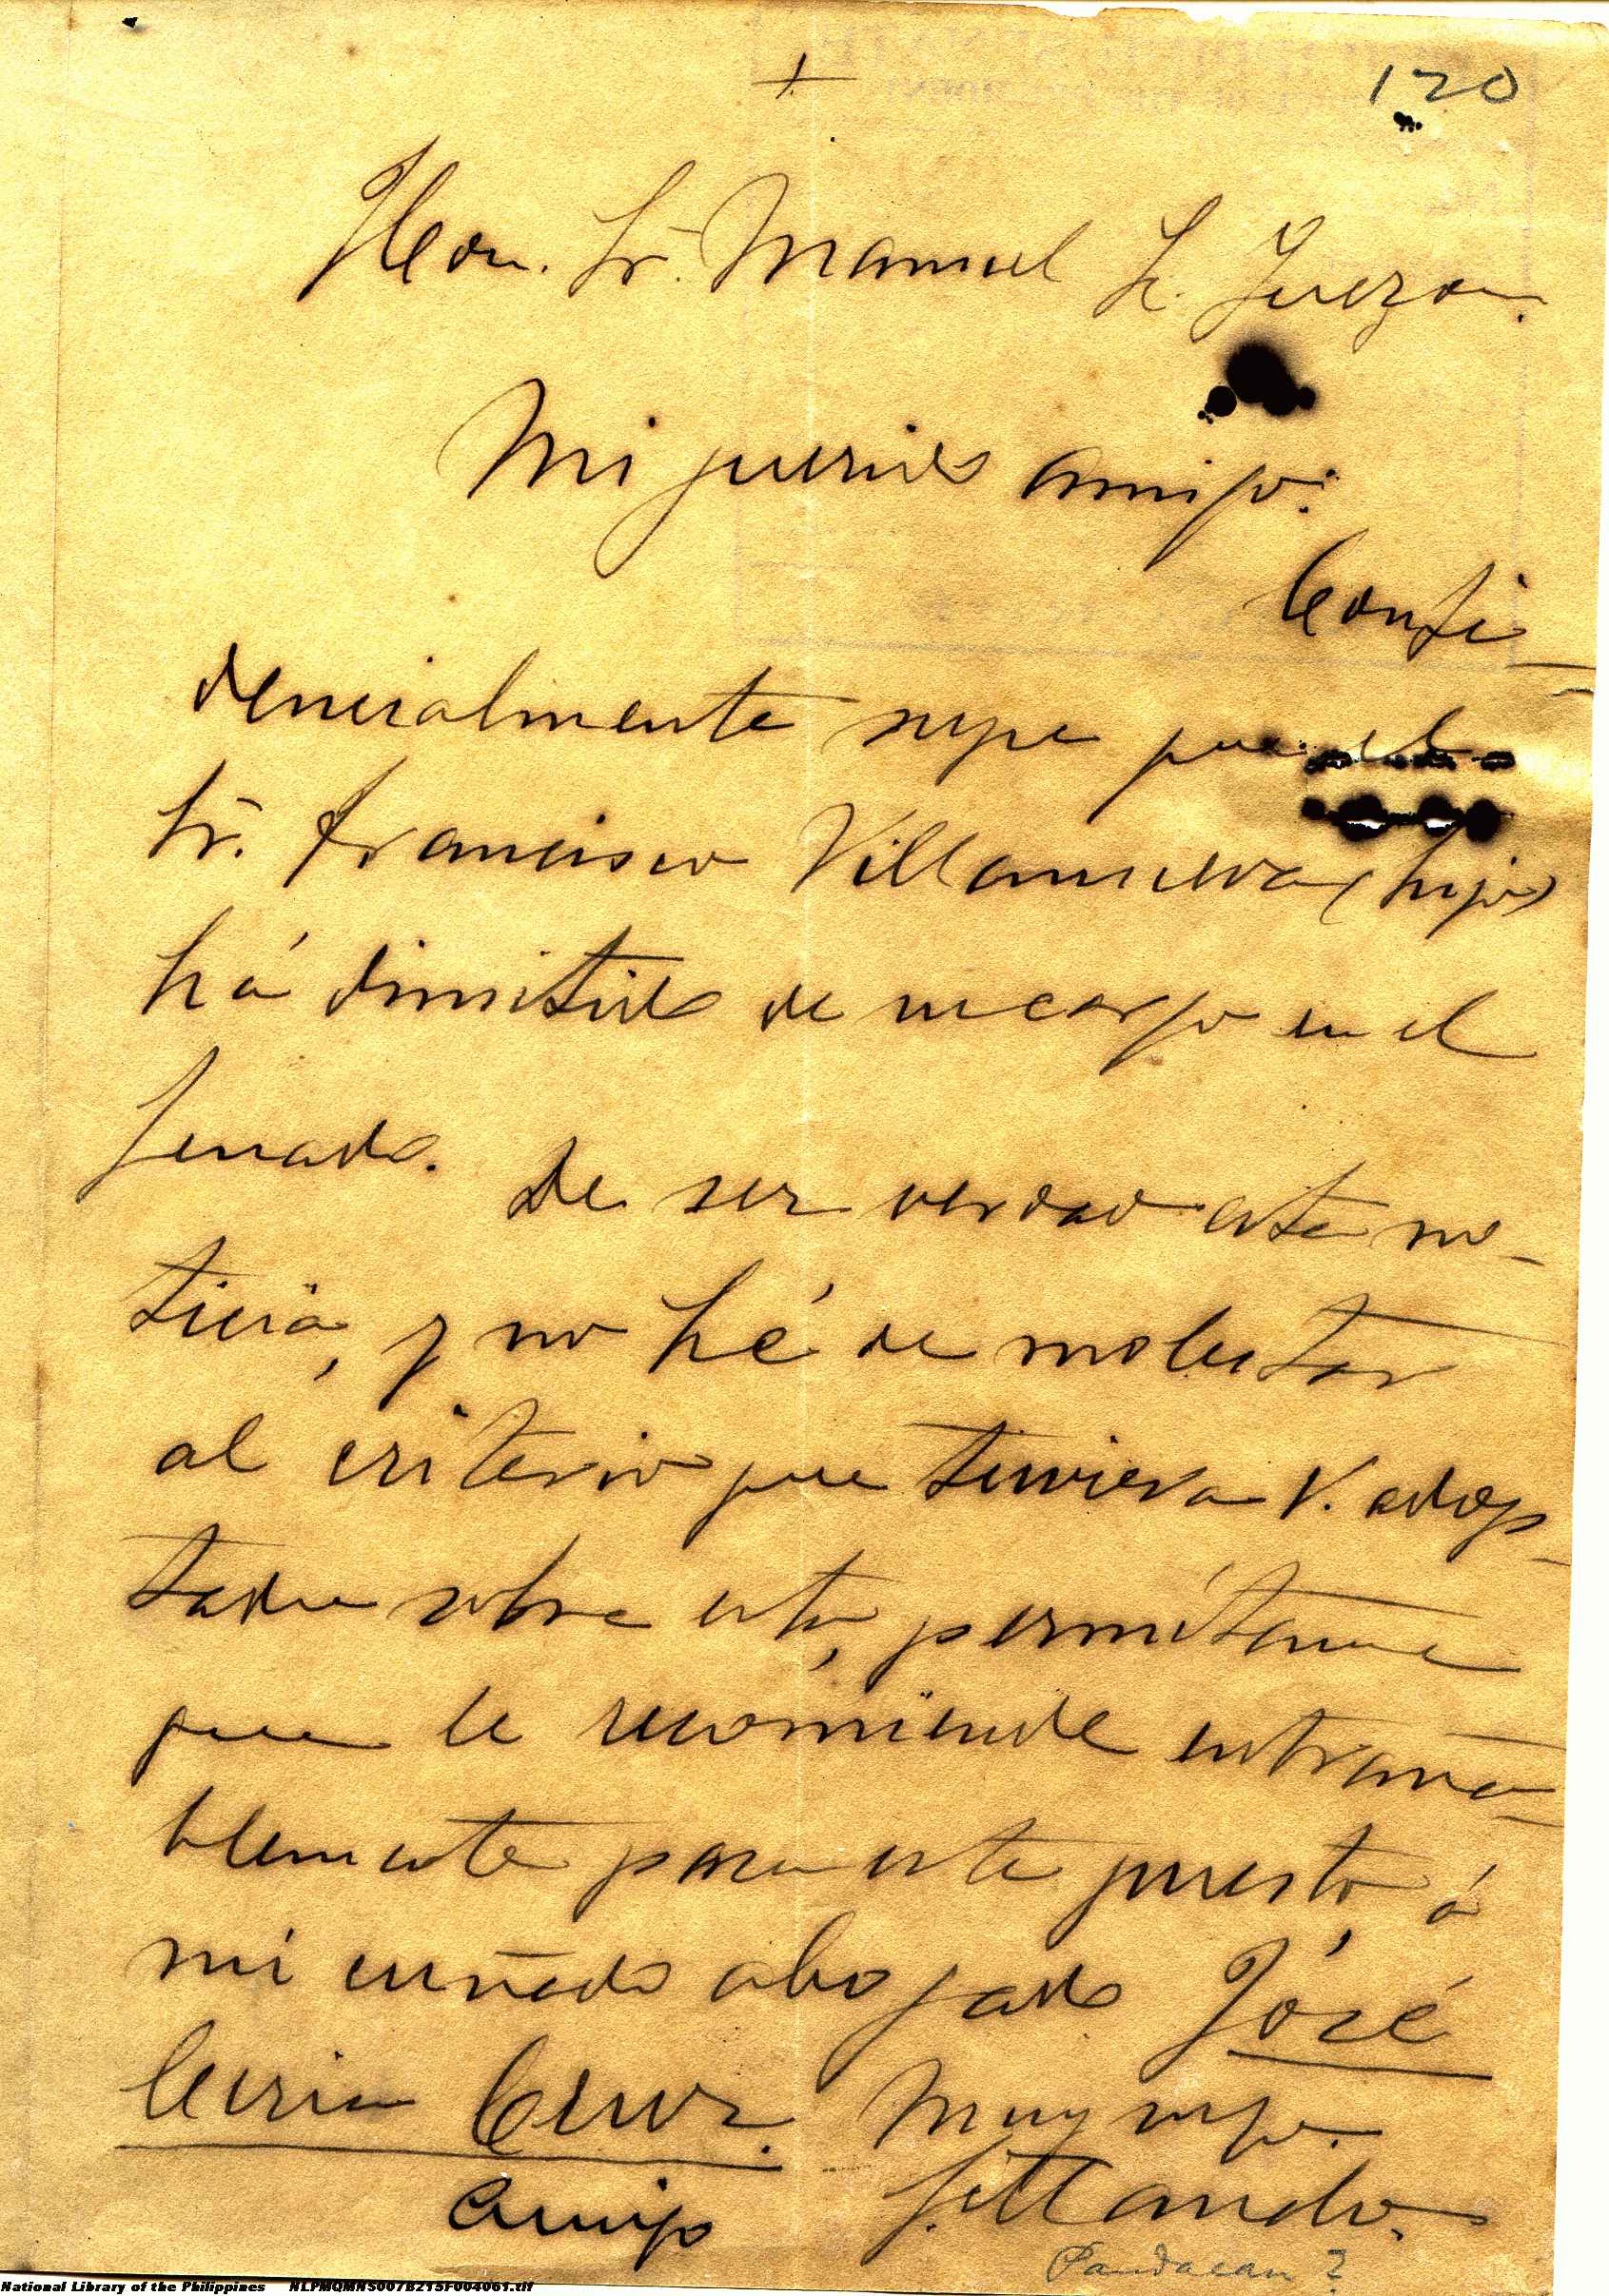 120
Hon. Sr. Manuel L. Quezon.
Mi querido amigo:
Confi-
dencialmente supe que el
Sr. Francisco Villanueva (hijo)
há dimitido de su cargo en el
Senado. De ser verdad esta no-
ticia, y no hé de molestar
al criterio que tuviera V. adop-
tado sobre esto, permítame
que le recomiende entraña-
blemente para este puesto, á
mi cuñado abogado José
Curia Cruz. Muy suyo.
amigo
Pandacan?
National Library of the Philippines NLPMQMNS007B215F004061.tif